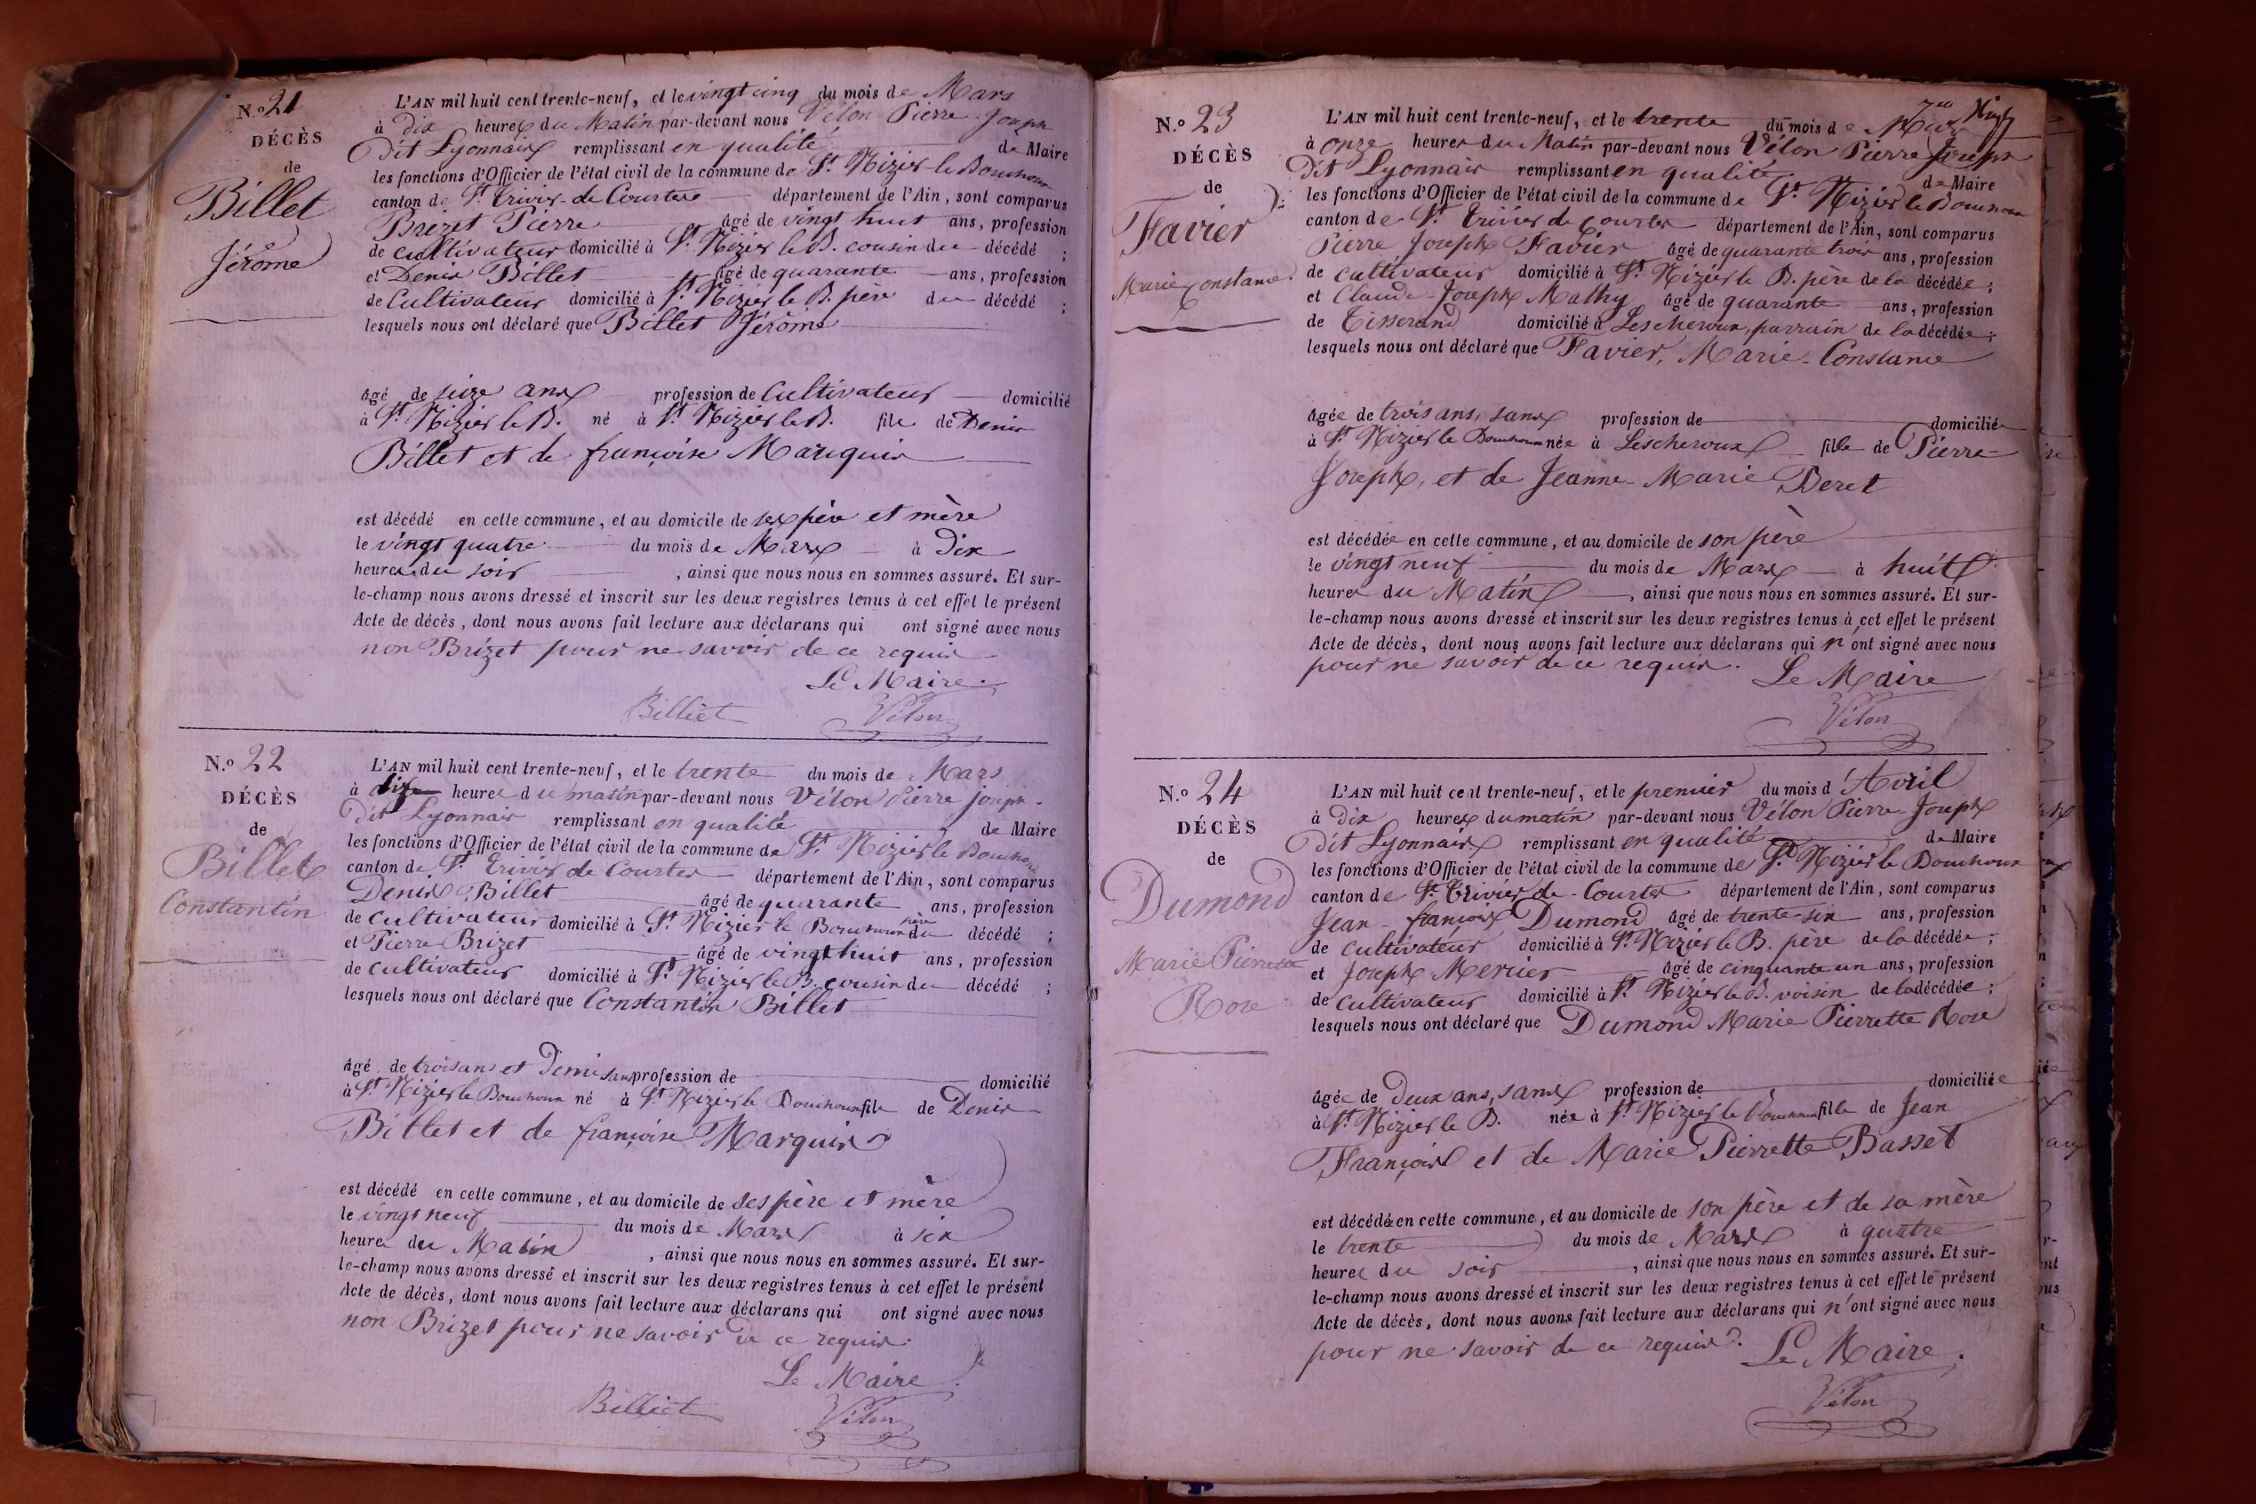 N.o 21
DÉCÈS
de
Billet
Jérôme
L'AN mil huit cent trente-neuf, et le vingt cinq du mois de Mars
à dix heures du Matin par-devant nous Vélon Pierre Joseph
Dit Lyonnais remplissant en qualité de Maire
les fonctions d'Officier de l'état civil de la commune de St. Nizier le Bouchoux
canton de St. Trivier de Courtes département de l'Ain, sont comparus
Brizet Pierre âgé de vingt huit ans, profession
de cultivateur domicilié à St. Nizier le B. cousin du décédé ;
et Denis Billet âgé de quarante ans, profession
de Cultivateur domicilié à St. Nizier le B. père du décédé ;
lesquels nous ont déclaré que Billet Jérôme
âgé de seize ans profession de Cultivateur domicilié
à St. Nizier le B. né à St. Nizier le B. fils de Denis
Billet et de françoise Marquis
est décédé en cette commune, et au domicile de ses père et mère
le vingt quatre du mois de Mars à Dix
heures du soir , ainsi que nous nous en sommes assuré. Et sur-
le-champ nous avons dressé et inscrit sur les deux registres tenus à cet effet le présent
Acte de décès, dont nous avons fait lecture aux déclarans qui ont signé avec nous
non Brizet pour ne savoir de ce requis
Le Maire.
Billiet Vélon
N.o 22
DÉCÈS
de
Billet
Constantin
L'AN mil huit cent trente-neuf, et le trente du mois de Mars
à dix heures du matin par-devant nous Vélon Pierre joseph
Dit Lyonnais remplissant en qualité de Maire
les fonctions d'Officier de l'état civil de la commune de St. Nizier le Bouchoux
canton de St. Trivier de Courtes département de l'Ain, sont comparus
Denis Billet âgé de quarante ans, profession
de cultivateur domicilié à St. Nizier le Bouchoux père du décédé ;
et Pierre Brizet âgé de vingt huit ans, profession
de cultivateur domicilié à St. Nizier le B. cousin du décédé ;
lesquels nous ont déclaré que Constantin Billet
âgé de trois ans et Demi sans profession de domicilié
à St. Nizier le Bouchoux né à St. Nizier le Bouchoux fils de Denis
Billet et de françoise Marquis
est décédé en cette commune, et au domicile de ses père et mère
le vingt neuf du mois de Mars à six
heures du Matin , ainsi que nous nous en sommes assuré. Et sur-
le-champ nous avons dressé et inscrit sur les deux registres tenus à cet effet le présent
Acte de décès, dont nous avons fait lecture aux déclarans qui ont signé avec nous
non Brizet pour ne savoir de ce requis.
Le Maire.
Billiet Vélon
N.o 23
DÉCÈS
de
Favier
Marie Constance
L'AN mil huit cent trente-neuf, et le trente du mois de Mars
à onze heures du Matin par-devant nous Vélon Pierre Joseph
Dit Lyonnais remplissant en qualité de Maire
les fonctions d'Officier de l'état civil de la commune de St. Nizier le Bouchoux
canton de St. Trivier de Courtes département de l'Ain, sont comparus
Pierre Joseph Favier âgé de quarante trois ans, profession
de cultivateur domicilié à St. Nizier le B. père de la décédée ;
et Claude Joseph Mathy âgé de quarante ans, profession
de Tisserand domicilié à Lescheroux, parrain de la décédée ;
lesquels nous ont déclaré que Favier, Marie-Constance
âgée de trois ans, sans profession de domiciliée
à St. Nizier le Bouchoux née à Lescheroux fille de Pierre
Joseph, et de Jeanne-Marie Beret
est décédée en cette commune, et au domicile de son père
le vingt neuf du mois de Mars à huit
heures du Matin , ainsi que nous nous en sommes assuré. Et sur-
le-champ nous avons dressé et inscrit sur les deux registres tenus à cet effet le présent
Acte de décès, dont nous avons fait lecture aux déclarans qui n'ont signé avec nous
pour ne savoir de ce requis.
Le Maire
Vélon
N.o 24
DÉCÈS
de
Dumond
Marie Pierrette
Rose
L'AN mil huit cent trente-neuf, et le premier du mois d'Avril
à Dix heures du matin par-devant nous Vélon Pierre Joseph
Dit Lyonnais remplissant en qualité de Maire
les fonctions d'Officier de l'état civil de la commune de St. Nizier le Bouchoux
canton de St. Trivier de Courtes département de l'Ain, sont comparus
Jean-françois Dumond âgé de trente-six ans, profession
de cultivateur domicilié à St. Nizier le B. père de la décédée ;
et Joseph Mercier âgé de cinquante un ans, profession
de cultivateur domicilié à St. Nizier le B. voisin de la décédée ;
lesquels nous ont déclaré que Dumond Marie Pierrette Rose
âgée de Deux ans, sans profession de domiciliée
à St. Nizier le B. née à St. Nizier le Bouchoux fille de Jean
François et de Marie Pierrette Basset
est décédée en cette commune, et au domicile de son père et de sa mère
le trente du mois de Mars à quatre
heures du soir , ainsi que nous nous en sommes assuré. Et sur-
le-champ nous avons dressé et inscrit sur les deux registres tenus à cet effet le présent
Acte de décès, dont nous avons fait lecture aux déclarans qui n'ont signé avec nous
pour ne savoir de ce requis.
Le Maire.
Vélon